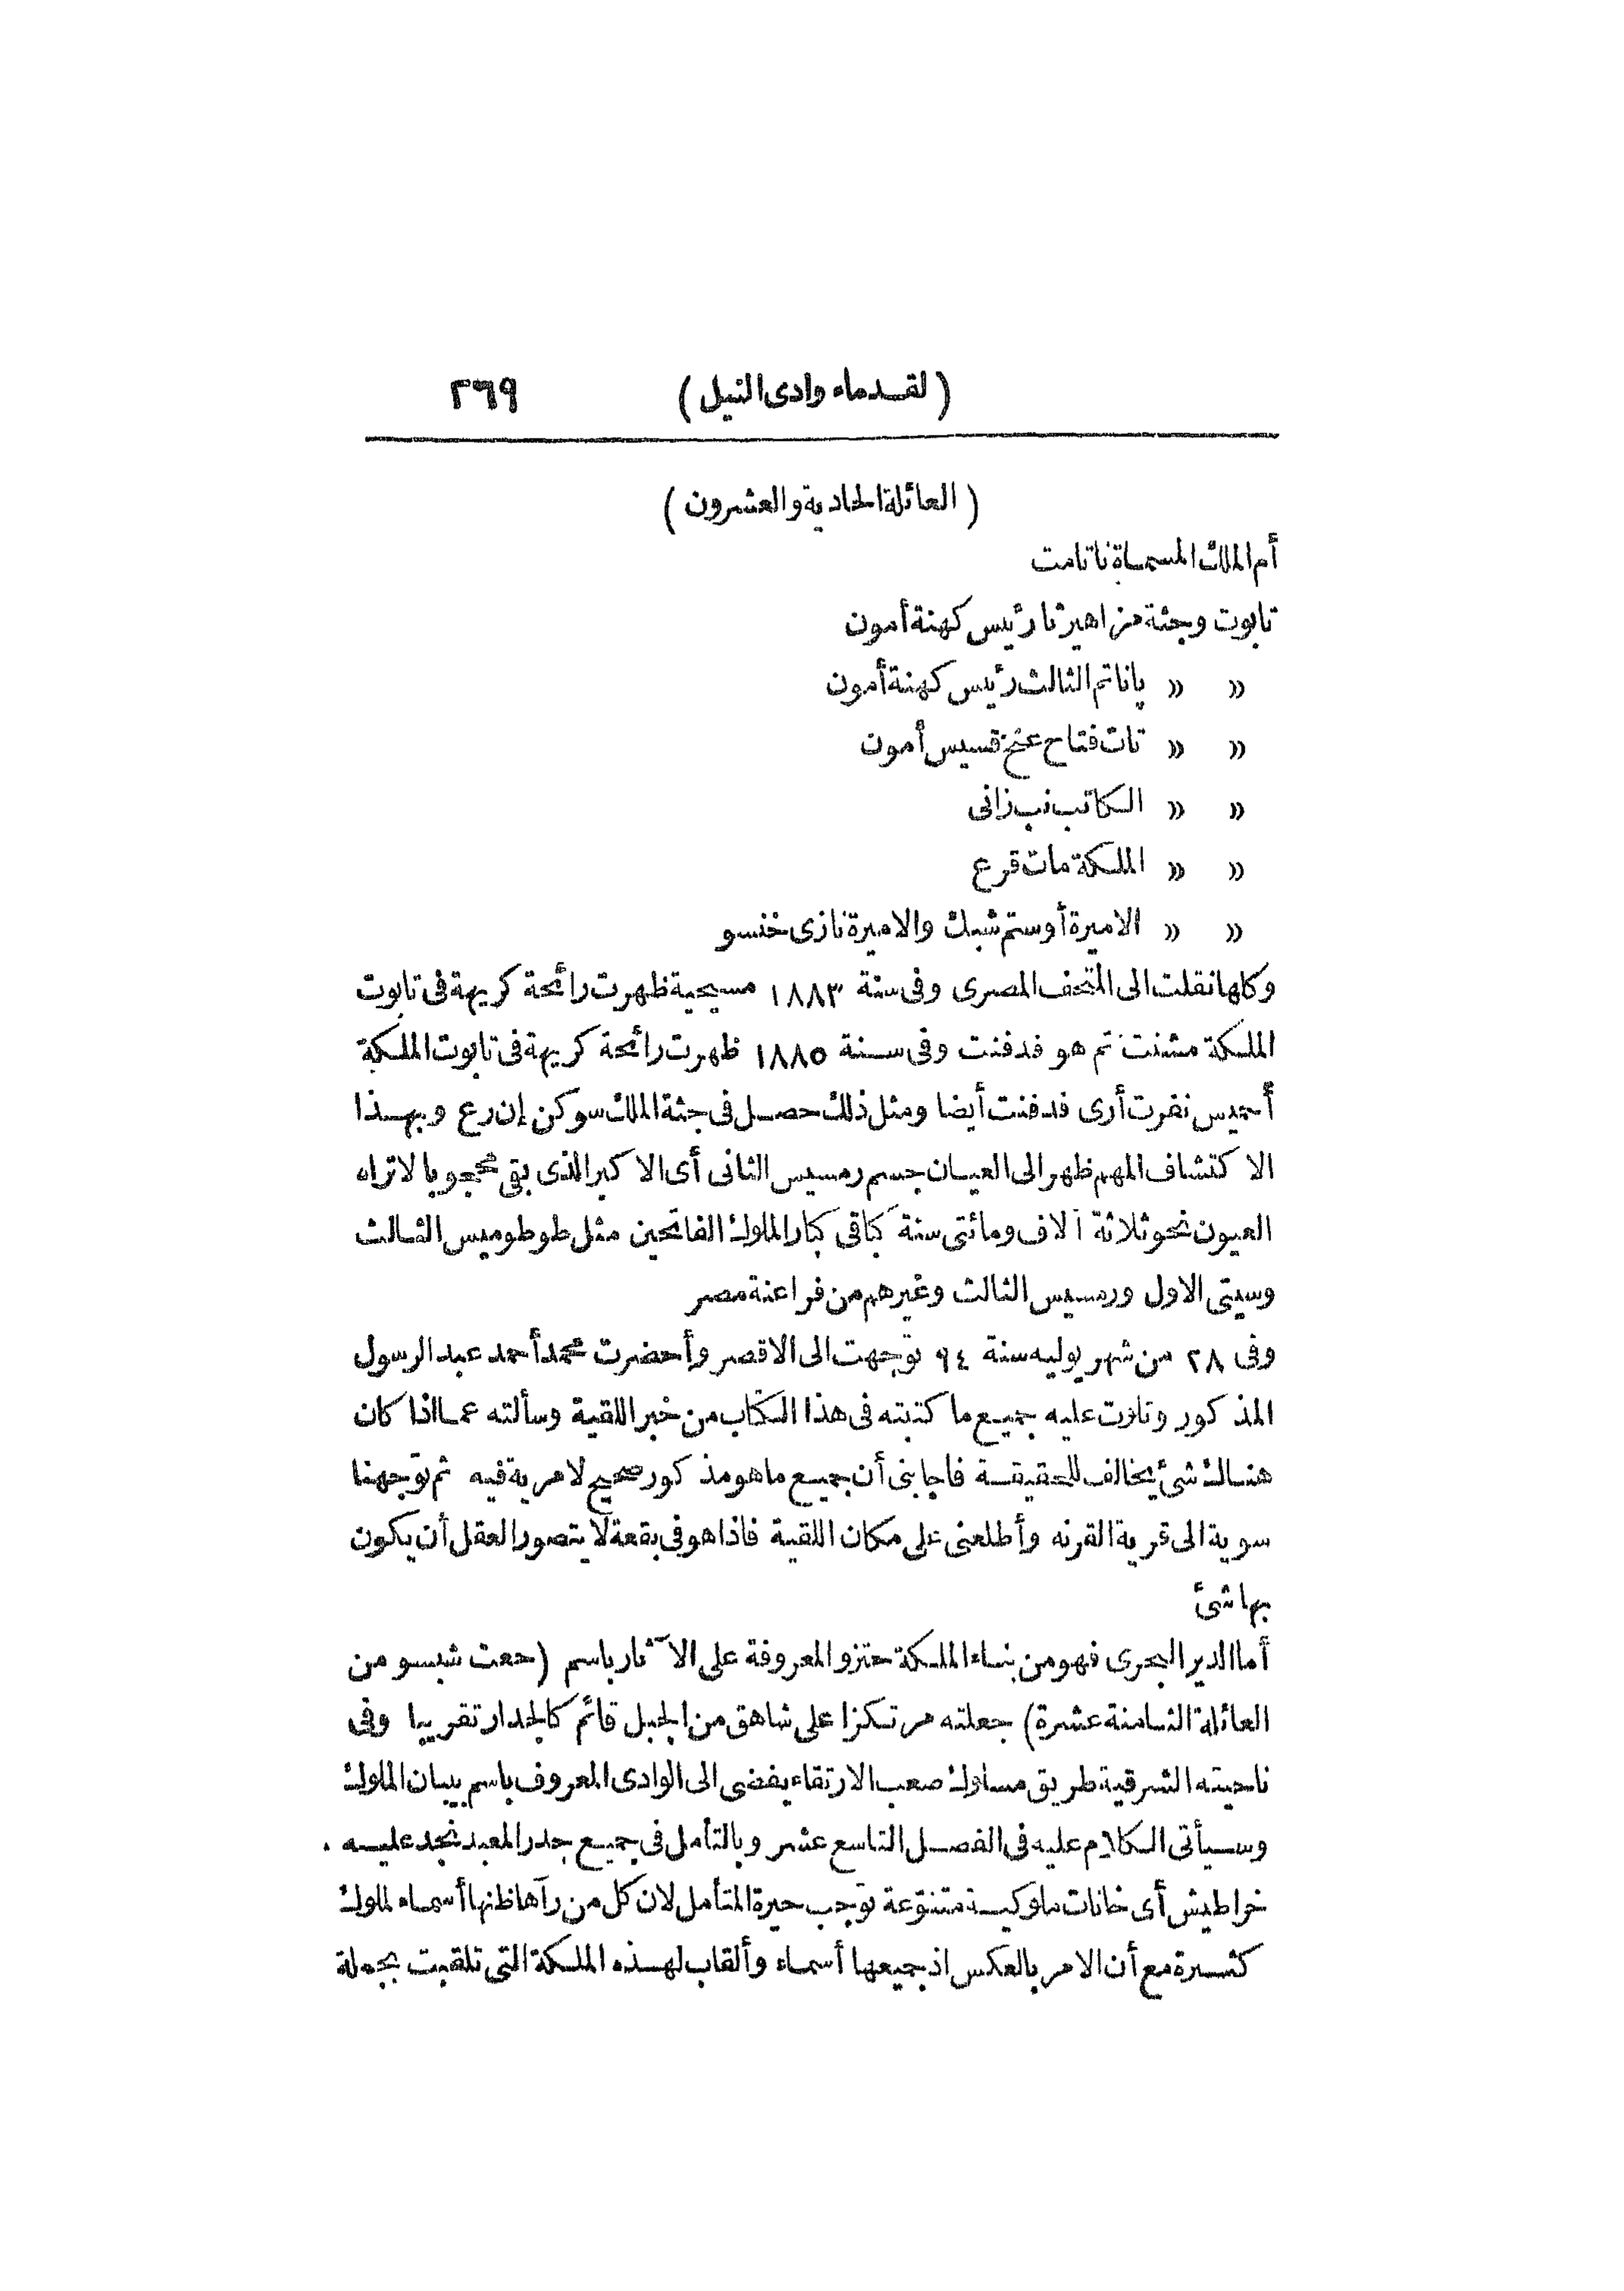 (لقدماء وادى النيل) ٢٦٩
(العائلة الحادية والعشرون)
أم الملك المسماة ناتامت
تابوت وجثة مزاهيرثا رئيس كهنة أمون
« « پاناتم الثالث رئيس كهنة أمون
« « تات فتاح عنخ قسيس أمون
« « الكاتب نب زانى
« « الملكة مات قرع
« « الاميرة أوستم شبك والاميرة نازى خنسو
وكلها نقلت الى المتحف المصرى وفى سنة ١٨٨٣ مسيحية ظهرت رائحة كريهة فى تابوت
الملكة مشنت تم هو فدفنت وفى سنة ١٨٨٥ ظهرت رائحة كريهة فى تابوت الملكة
أحميس نفرت أرى فدفنت أيضا ومثل ذلك حصل فى جثة الملك سوكن إن رع وبهذا
الاكتشاف المهم ظهر الى العيان جسم رمسيس الثانى أى الاكبر الذى بقى محجوبا لاتراه
العيون نحو ثلاثة آلاف ومائتى سنة كباقى كبار الملوك الفاتحين مثل طوطوميس الثالث
وسيتى الاول ورمسيس الثالث وغيرهم من فراعنة مصر
وفى ٢٨ من شهر يوليه سنة ٩٤ توجهت الى الاقصر وأحضرت محمد أحمد عبد الرسول
المذكور وتلوت عليه جميع ما كتبته فى هذا الكتاب من خبر اللقية وسألته عما اذا كان
هناك شئ يخالف للحقيقة فاجابنى أن جميع ماهو مذكور صحيح لامرية فيه ثم توجهنا
سوية الى قرية القرنه وأطلعنى على مكان اللقية فاذا هو فى بقعة لا يتصور العقل أن يكون
بها شئ
أما الدير البحرى فهو من بناء الملكة حتزو المعروفة على الآثار باسم (حعت شبسو من
العائلة الثامنة عشرة) جعلته مرتكزا على شاهق من الجبل قائم كالجدار تقريبا وفى
ناحيته الشرقية طريق مسلوك صعب الارتقاء يفضى الى الوادى المعروف باسم بيبان الملوك
وسيأتى الكلام عليه فى الفصل التاسع عشر وبالتأمل فى جميع جدر المعبد نجد عليه
خراطيش أى خانات ملوكية متنوّعة توجب حيرة المتأمل لان كل من رآها ظنها أسماء لملوك
كثيرة مع أن الامر بالعكس اذ جميعها أسماء وألقاب لهذه الملكة التى تلقبت بجملة